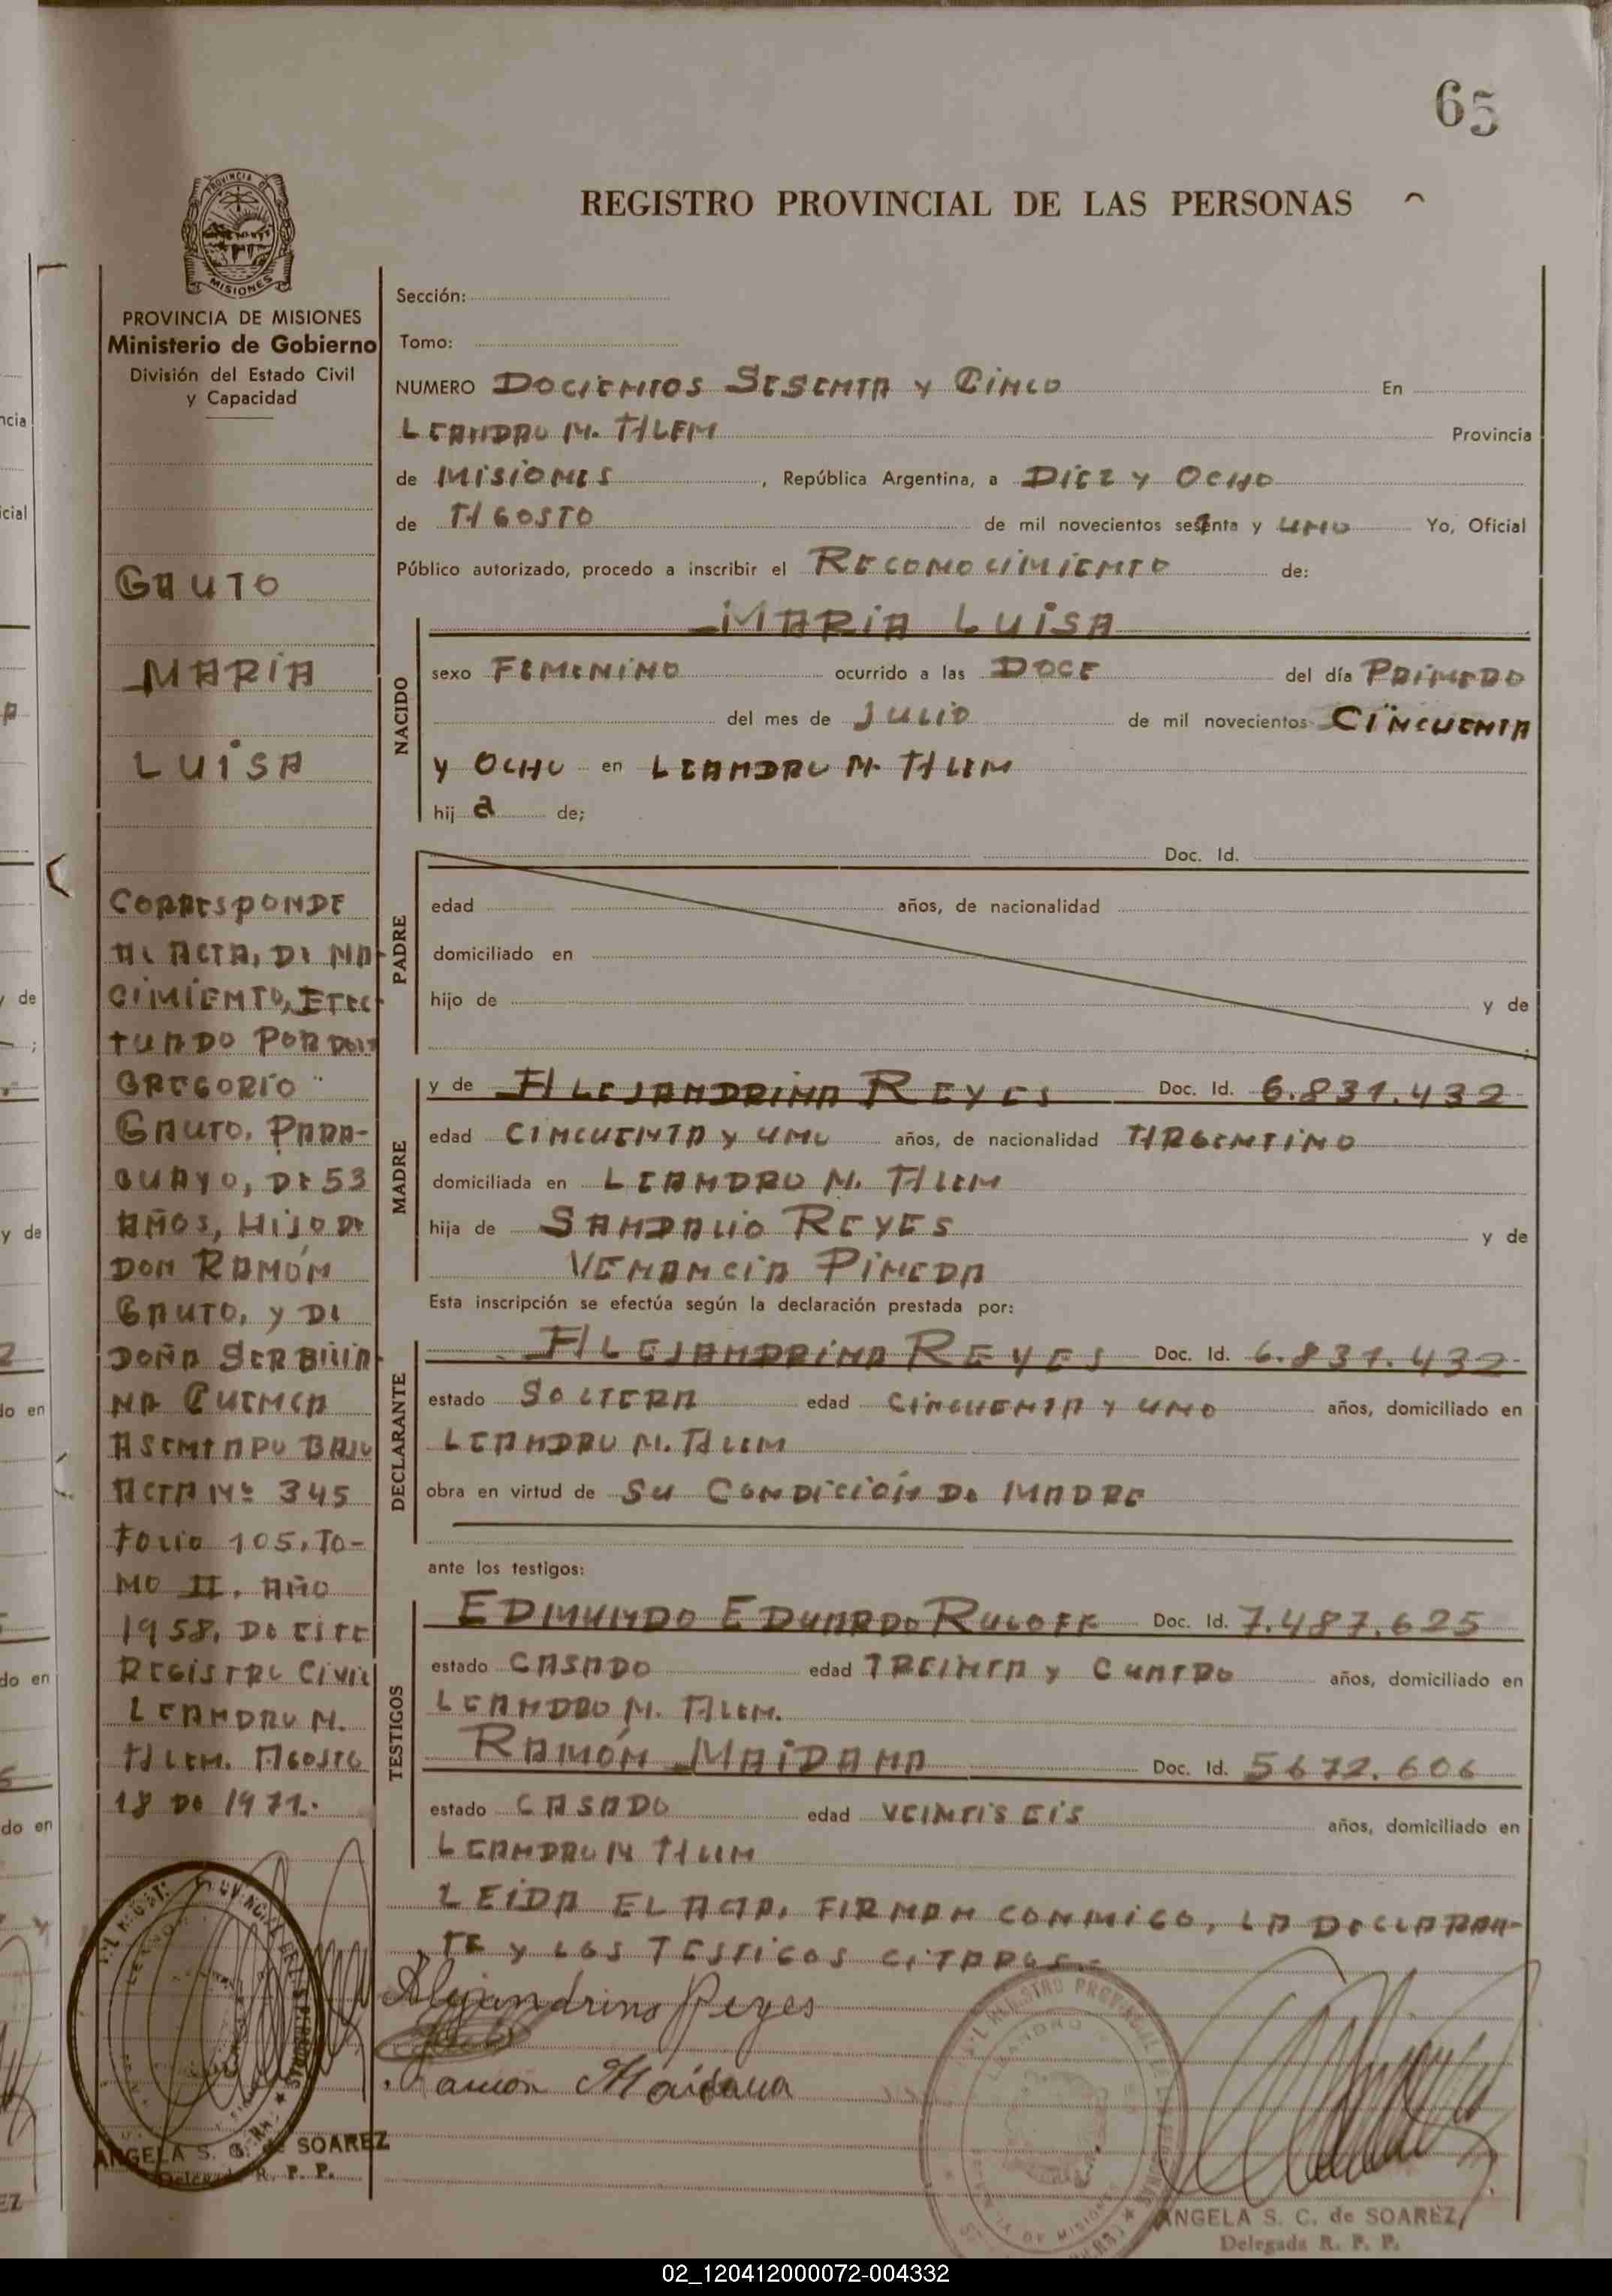 65
REGISTRO PROVINCIAL DE LAS PERSONAS
MISIONES
PROVINCIA DE MISIONES
Ministerio de Gobierno
División del Estado Civil
y Capacidad
GAUTO
MARIA
LUISA
CORRESPONDE
AL ACTA, DE NA-
CIMIENTO, EFEC-
TUADO POR DON
GREGORIO
GAUTO, PARA-
GUAYO, DE 53
AÑOS, HIJO DE
DON RAMÓN
GAUTO, Y DE
DOÑA
NA
ASENTADO BAJO
ACTA Nº 345
FOLIO 105, TO-
MO II. AÑO
1958, DE ESTE
REGISTRO CIVIL
LEANDRO N.
ALEM. AGOSTO
18 DE 1971.
ANGELA S. C. de SOAREZ
Delegada R. P. P.
Sección:
Tomo:
NUMERO DOCIENTOS SESENTA Y CINCO En
LEANDRO N. ALEM Provincia
de MISIONES, República Argentina, a DIEZ Y OCHO
de AGOSTO de mil novecientos setenta y UNO Yo, Oficial
Público autorizado, procedo a inscribir el RECONOCIMIENTO de:
MARIA LUISA
NACIDO
sexo FEMENINO ocurrido a las DOCE del día PRIMERO
del mes de JULIO de mil novecientos CINCUENTA
Y OCHO en LEANDRO N. ALEM
hij a de;
PADRE
Doc. Id.
edad años, de nacionalidad
domiciliado en
hijo de y de
MADRE
y de ALEJANDRINA REYES Doc. Id. 6.831.432
edad CINCUENTA Y UNO años, de nacionalidad ARGENTINO
domiciliada en LEANDRO N. ALEM
hija de SANDALIO REYES y de
VENANCIA PINEDA
Esta inscripción se efectúa según la declaración prestada por:
DECLARANTE
ALEJANDRINA REYES Doc. Id. 6.831.432
estado SOLTERA edad CINCUENTA Y UNO años, domiciliado en
LEANDRO N. ALEM
obra en virtud de SU CONDICIÓN DE MADRE
ante los testigos:
TESTIGOS
EDMUNDO EDUARDO RULOFF Doc. Id. 7.487.625
estado CASADO edad TREINTA Y CUATRO años, domiciliado en
LEANDRO N. ALEM.
RAMÓN MAIDANA Doc. Id. 5672.606
estado CASADO edad VEINTISEIS años, domiciliado en
LEANDRO N ALEM
LEIDA EL ACTA, FIRMAN CONMIGO, LA DECLARAN-
TE Y LOS TESTIGOS CITADOS.-
Alejandrina Reyes
Ramón Maidana
ANGELA S. C. de SOAREZ
Delegada R. P. P.
02_120412000072-004332